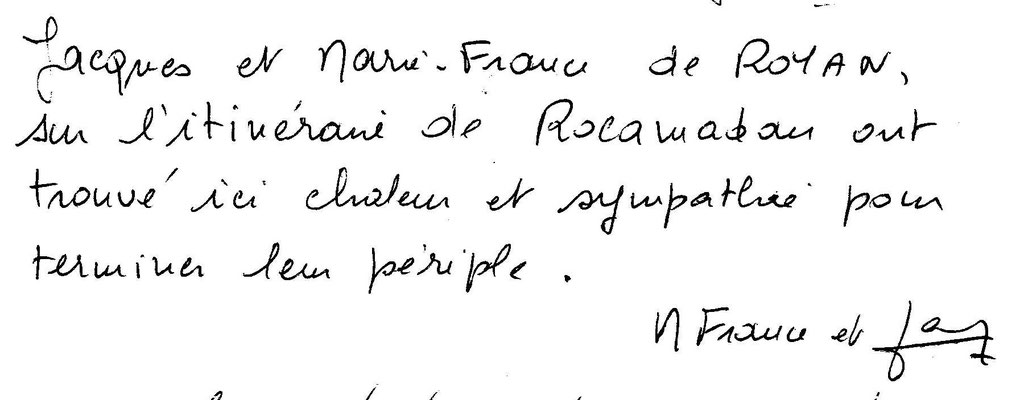 Jacques et Marie-France de ROYAN,
sur l'itinéraire de Rocamadour ont
trouvé ici chaleur et sympathie pour
terminer leur périple.
M France et Jacq